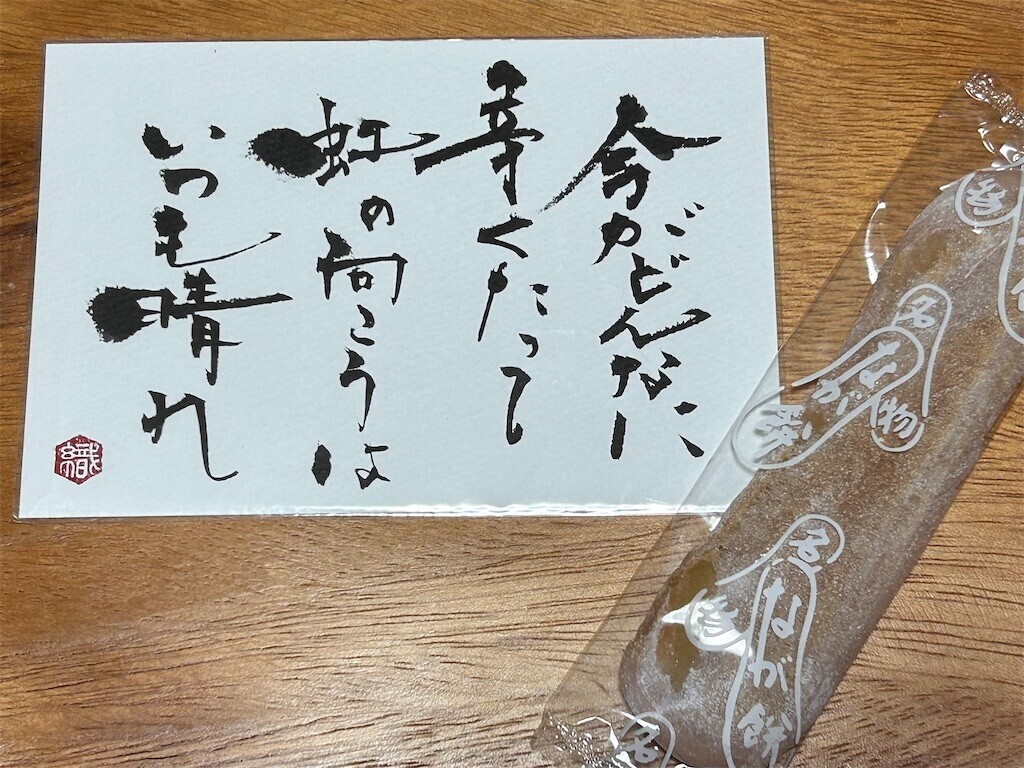 今がどんなに
辛くたって
虹の向こうは
いつも晴れ
織
名物
なが餅
名
なが餅
名